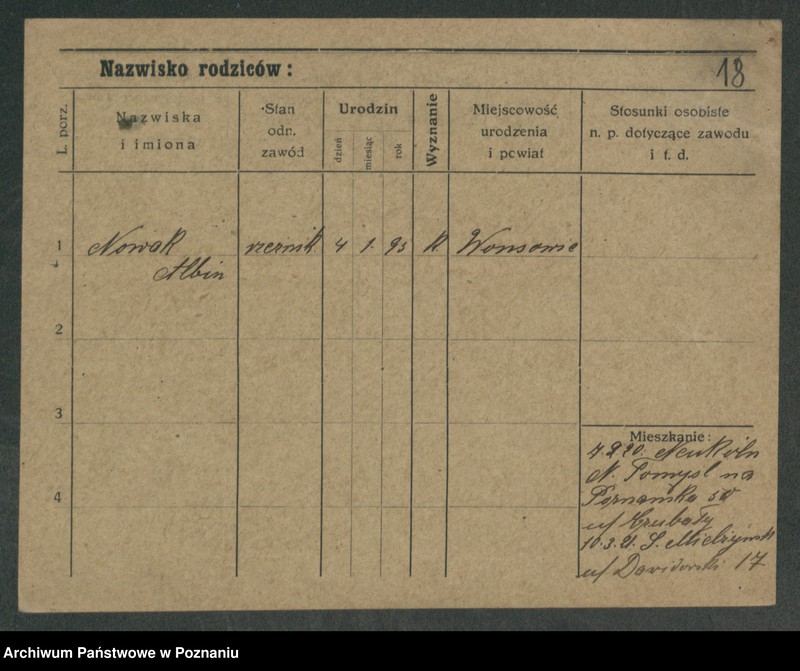 Nazwisko rodziców:
18
L. porz.
Nazwiska
i imiona
Stan
odn.
zawód
Urodzin
dzień
miesiąc
rok
Wyznanie
Miejscowość
urodzenia
i powiat
Stosunki osobiste
n. p. dotyczące zawodu
i t. d.
1
Nowak
rzeźnik
4
1.
93
k.
Wonsowie
Albin
2
3
4
Mieszkanie:
4.2.20. Neukölln
N. Tomysl na
Poznańska 50
u/ Grubały
10.3.21. S. Mielżyńsk
u/ Dawidowski 17
Archiwum Państwowe w Poznaniu